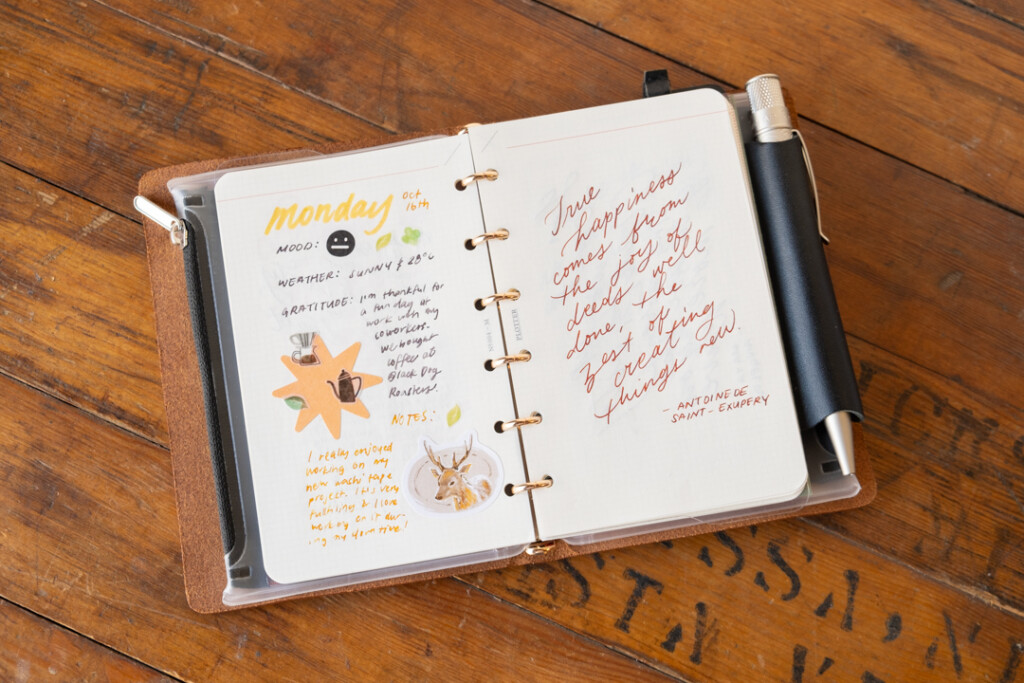 monday Oct. 16th
MOOD:
WEATHER: SUNNY & 28°C
GRATITUDE: I'm thankful for
a fun day at
work with my
coworkers.
We bought
coffee at
Black Dog
Roastery.
NOTES:
I really enjoyed
working on my
new washi tape
project. It's very
fulfilling & I love
working on it dur-
ing my down time!
PLOTTER
True
happiness
comes from
the joy of
deeds well
done, the
zest of
creating
things new.
- ANTOINE DE
SAINT-EXUPERY